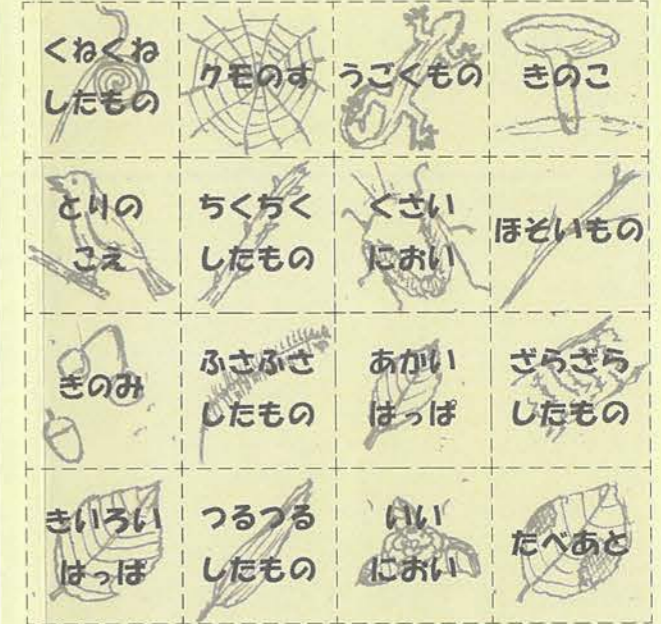 くねくね
したもの
クモのす
うごくもの
きのこ
とりの
こえ
ちくちく
したもの
くさい
におい
ほそいもの
きのみ
ふさふさ
したもの
あかい
はっぱ
ざらざら
したもの
きいろい
はっぱ
つるつる
したもの
いい
におい
たべあと